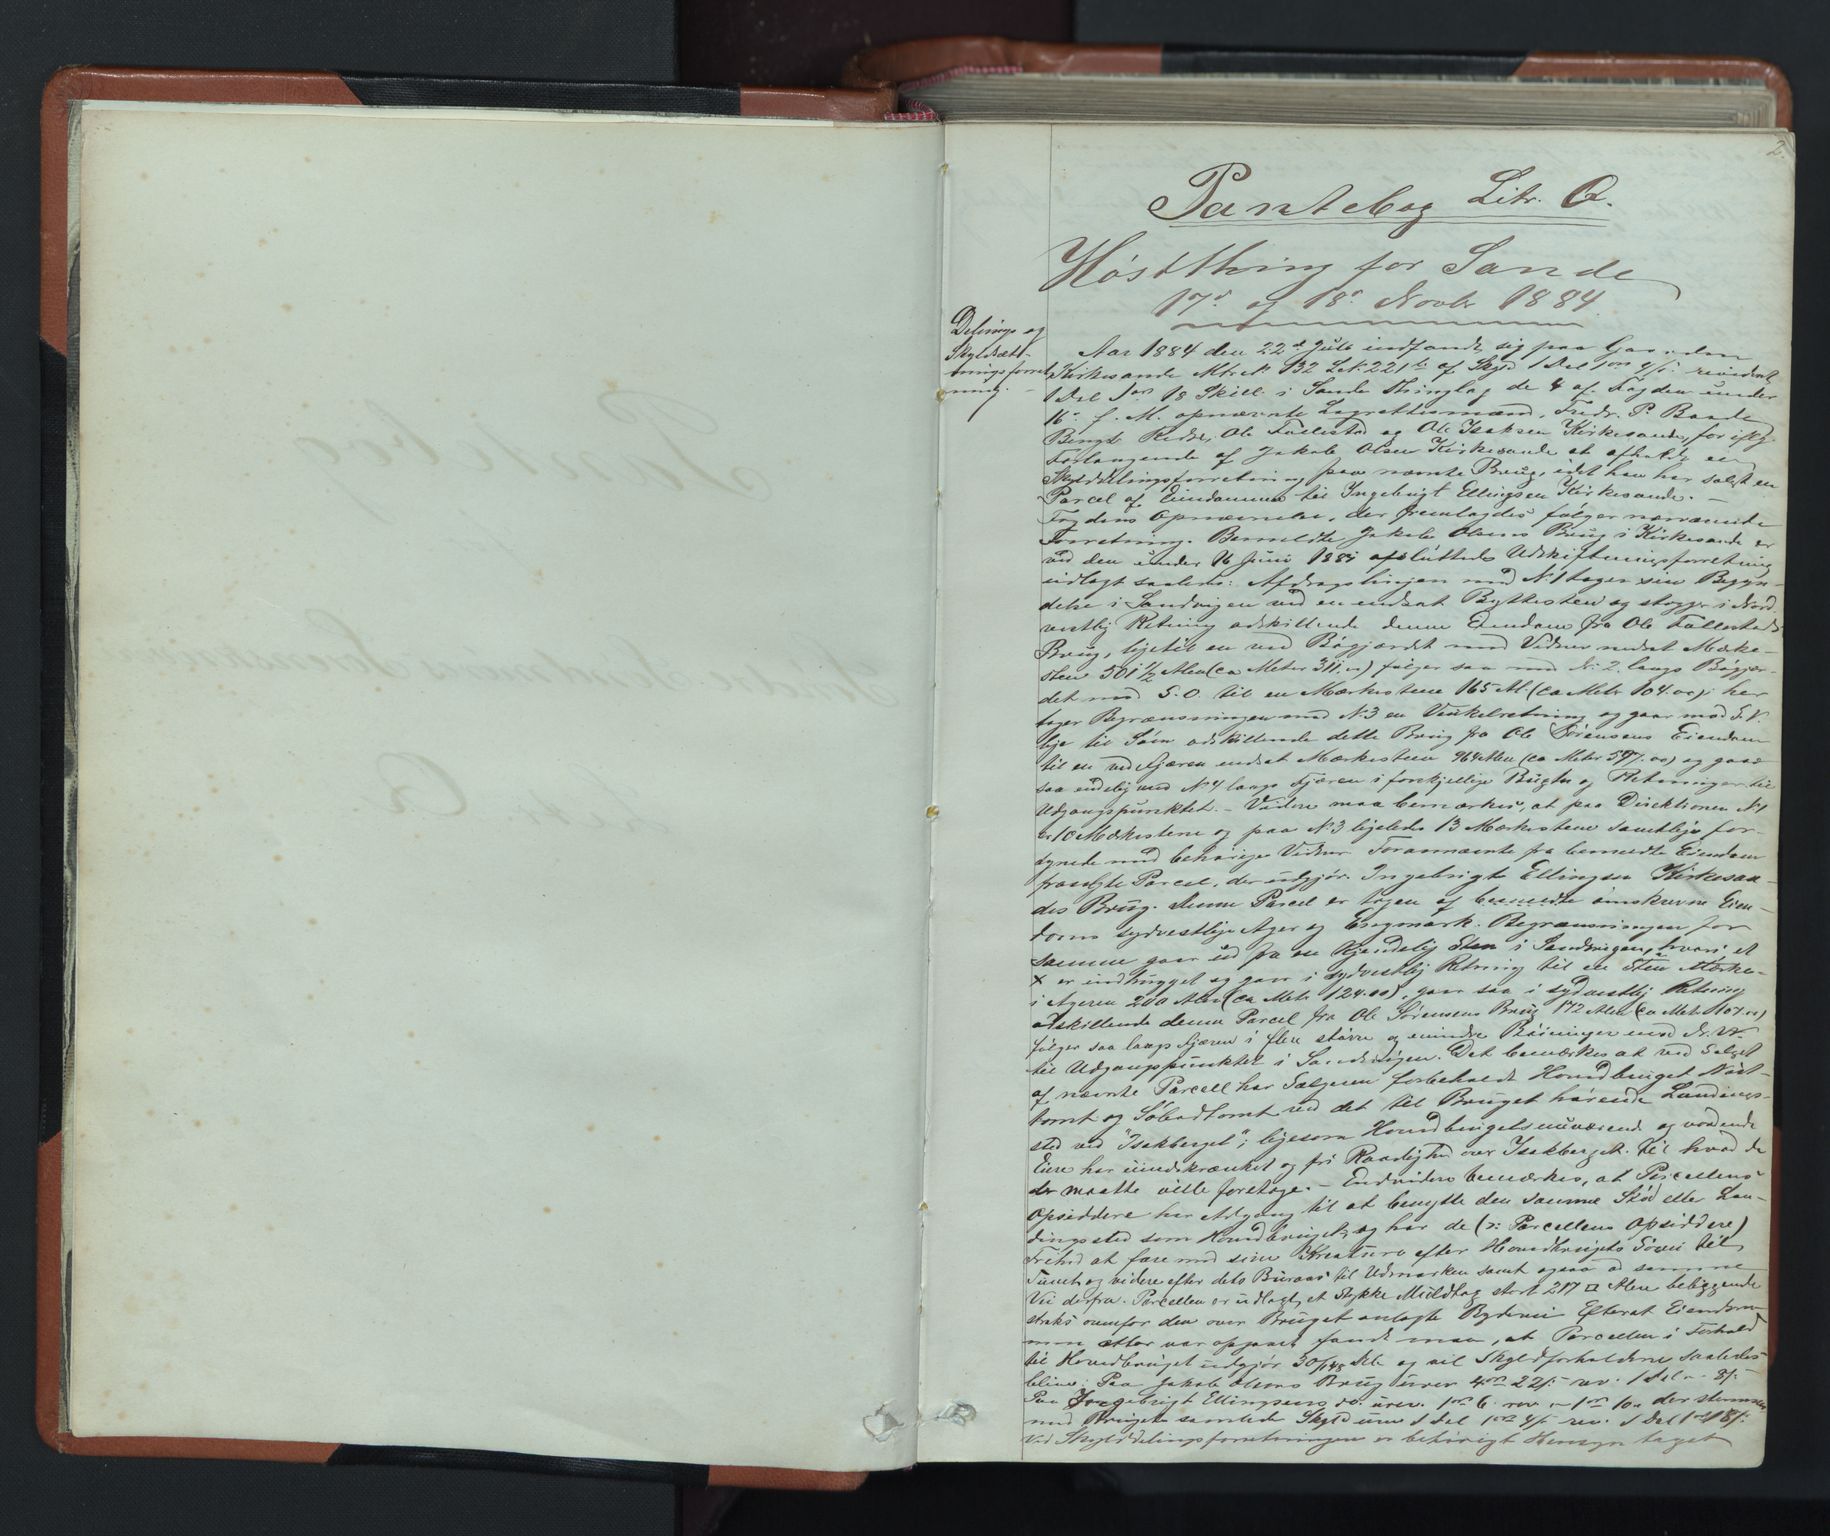 2.
Pantebog Litr. Q.
Høstthing for Sande
17de og 18de Novbr 1884.
Delings og
Skyldsæt-
ningsforret
ning.
Aar 1884 den 22de Juli indfandt sig paa Gaarden
Kirkesande Mtr.N. 132 L.N. 221 af Skyld 1 Dal 1 ort revideret
1 Dal 1 ort 18 Skill i Sande Thinglag de 4 af Fogden under
16de f. M. opnævnte Lagrettesmænd, Fredr. P. Bande
Bengt Redse, Ole Follestad og Ole Isaksen Kirkesande, for ifølge
Forlangende af Jakob Olsen Kirkesande at afholde en
Skylddelingsforretning paa nævnte Brug, idet han har solgt en
Parcel af Eiendommen til Ingebrigt Ellingsen Kirkesande. —
Fogdens Opnævnelse, der fremlagdes følger nærværende
Forretning. Bemeldte Jakob Olsens Brug i Kirkesande er
ved den under 16 Juni 1881 afsluttede Udskiftningsforretning
udlagt saaledes: Afdragslinjen med N.1 tager sin Begyn-
delse i Sandvigen ved en endsat Byttesten og stryger i Nord-
vestlig Retning adskillende denne Eiendom fra Ole Follestads
Brug, ligetil en ved Bøgjærdet med Vidner nedsat Mærke-
sten 501 1/2 Alen (ca Meter 311.00) følger saa med N. 2. langs Bøgjær-
det mod S.O. til en Mærkestene 165 Al. (ca Metr 104.00); her
tager Begrænsningen med N.3 en Vinkelretning og gaar mod S.V.
lige til Søen adskillende dette Brug fra Ole Sørensens Eiendom
til en ved Fjæren endsat Mærkesten 964 Alen (ca Metr 597.00) og gaar
saa endelig med N.4 langs Fjæren i forskjellige Bugter og Retninger til
Udgangspunktet. — Videre maa bemærkes, at paa Direktionen N.1
er 10 Mærkestene og paa N.3 ligeledes 13 Mærkestene samtlige for-
synede med behørige Vidner. Forannævnte fra bemeldte Eiendom
frasolgte Parcel, der udgjør Ingebrigt Ellingsen Kirkesan-
des Brug. Denne Parcel er tagen af bemeldte omskrevne Eien-
doms sydvestlige Ager og Engmark. Begrænsningen for
samme gaar ud fra en kjendelig Sten i Sandvigen, hvori et
X er indhugget og gaar i sydvestlig Retning til en Sten Mærke-
i Ageren 200 Alen (ca Metr 124.00), gaar saa i sydvestlig Retning
adskillende denne Parcel fra Ole Sørensens Brug 172 Alen (ca Metr 107.00)
følger saa langs Fjæren i flere større og mindre Bøininger mod N.V.
til Udgangspunktet i Sandvigen. Det bemærkes at ved Salget
af nævnte Parcell har Sælgeren forbeholdt Hovedbruget Nøst-
tomt og Søbodtomt ved det til Bruget hørende Landings-
sted ved "Isakberget", ligesom Hovedbrugets nuværende og vordende
Eiere har uindskrænket og fri Raadighed over Isakberget til hvad de
der maatte ville foretage. — Endvidere bemærkes, at Parcellens
Opsiddere har Adgang til at benytte den samme Stød eller Lan-
dingssted som Hovedbruget, og har de (ɔ: Parcellens Opsiddere)
Frihed at fare med sine Kreaturer efter Hovedbrugets Søvei til
Tunet og videre efter dets Buraas til Udmarken samt ogsaa ad samme
Vei derfra. Parcellen er udlagt et Stykke Muldtag stort 217 □ Alen beliggende
straks ovenfor den over Bruget anlagte Bygdevei. Efterat Eiendom-
men efter var opgaaet fandt man, at Parcellen i Forhold
til Hovedbruget udgjør 30/148 Del og vil Skyldforholdene saaledes
blive: Paa Jakob Olsens Brug urev. 4 ort 22 s. rev. 1 Dal — 8 s.
Paa Ingebrigt Ellingsens do. urev. 1 ort 6 rev. — 1 ort 10. der stemmer
med Brugets samlede Skyld urev 1 Dal 1 ort 4 s. rev. 1 Dal 1 ort 18 s.
Ved Skylddelingsforretningen er behørigt Hensyn taget